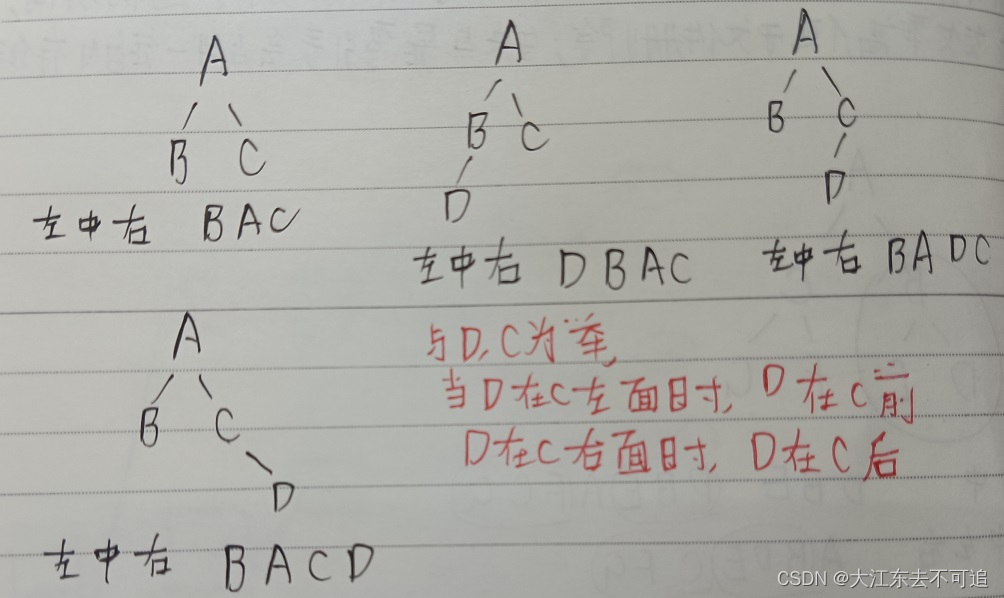 A
B C
左中右 BAC
A
B C
D
左中右 DBAC
A
B C
D
左中右 BADC
A
B C
D
左中右 BACD
与D,C为举,
当D在C左面时,D在C前
D在C右面时,D在C后
CSDN @大江东去不可追